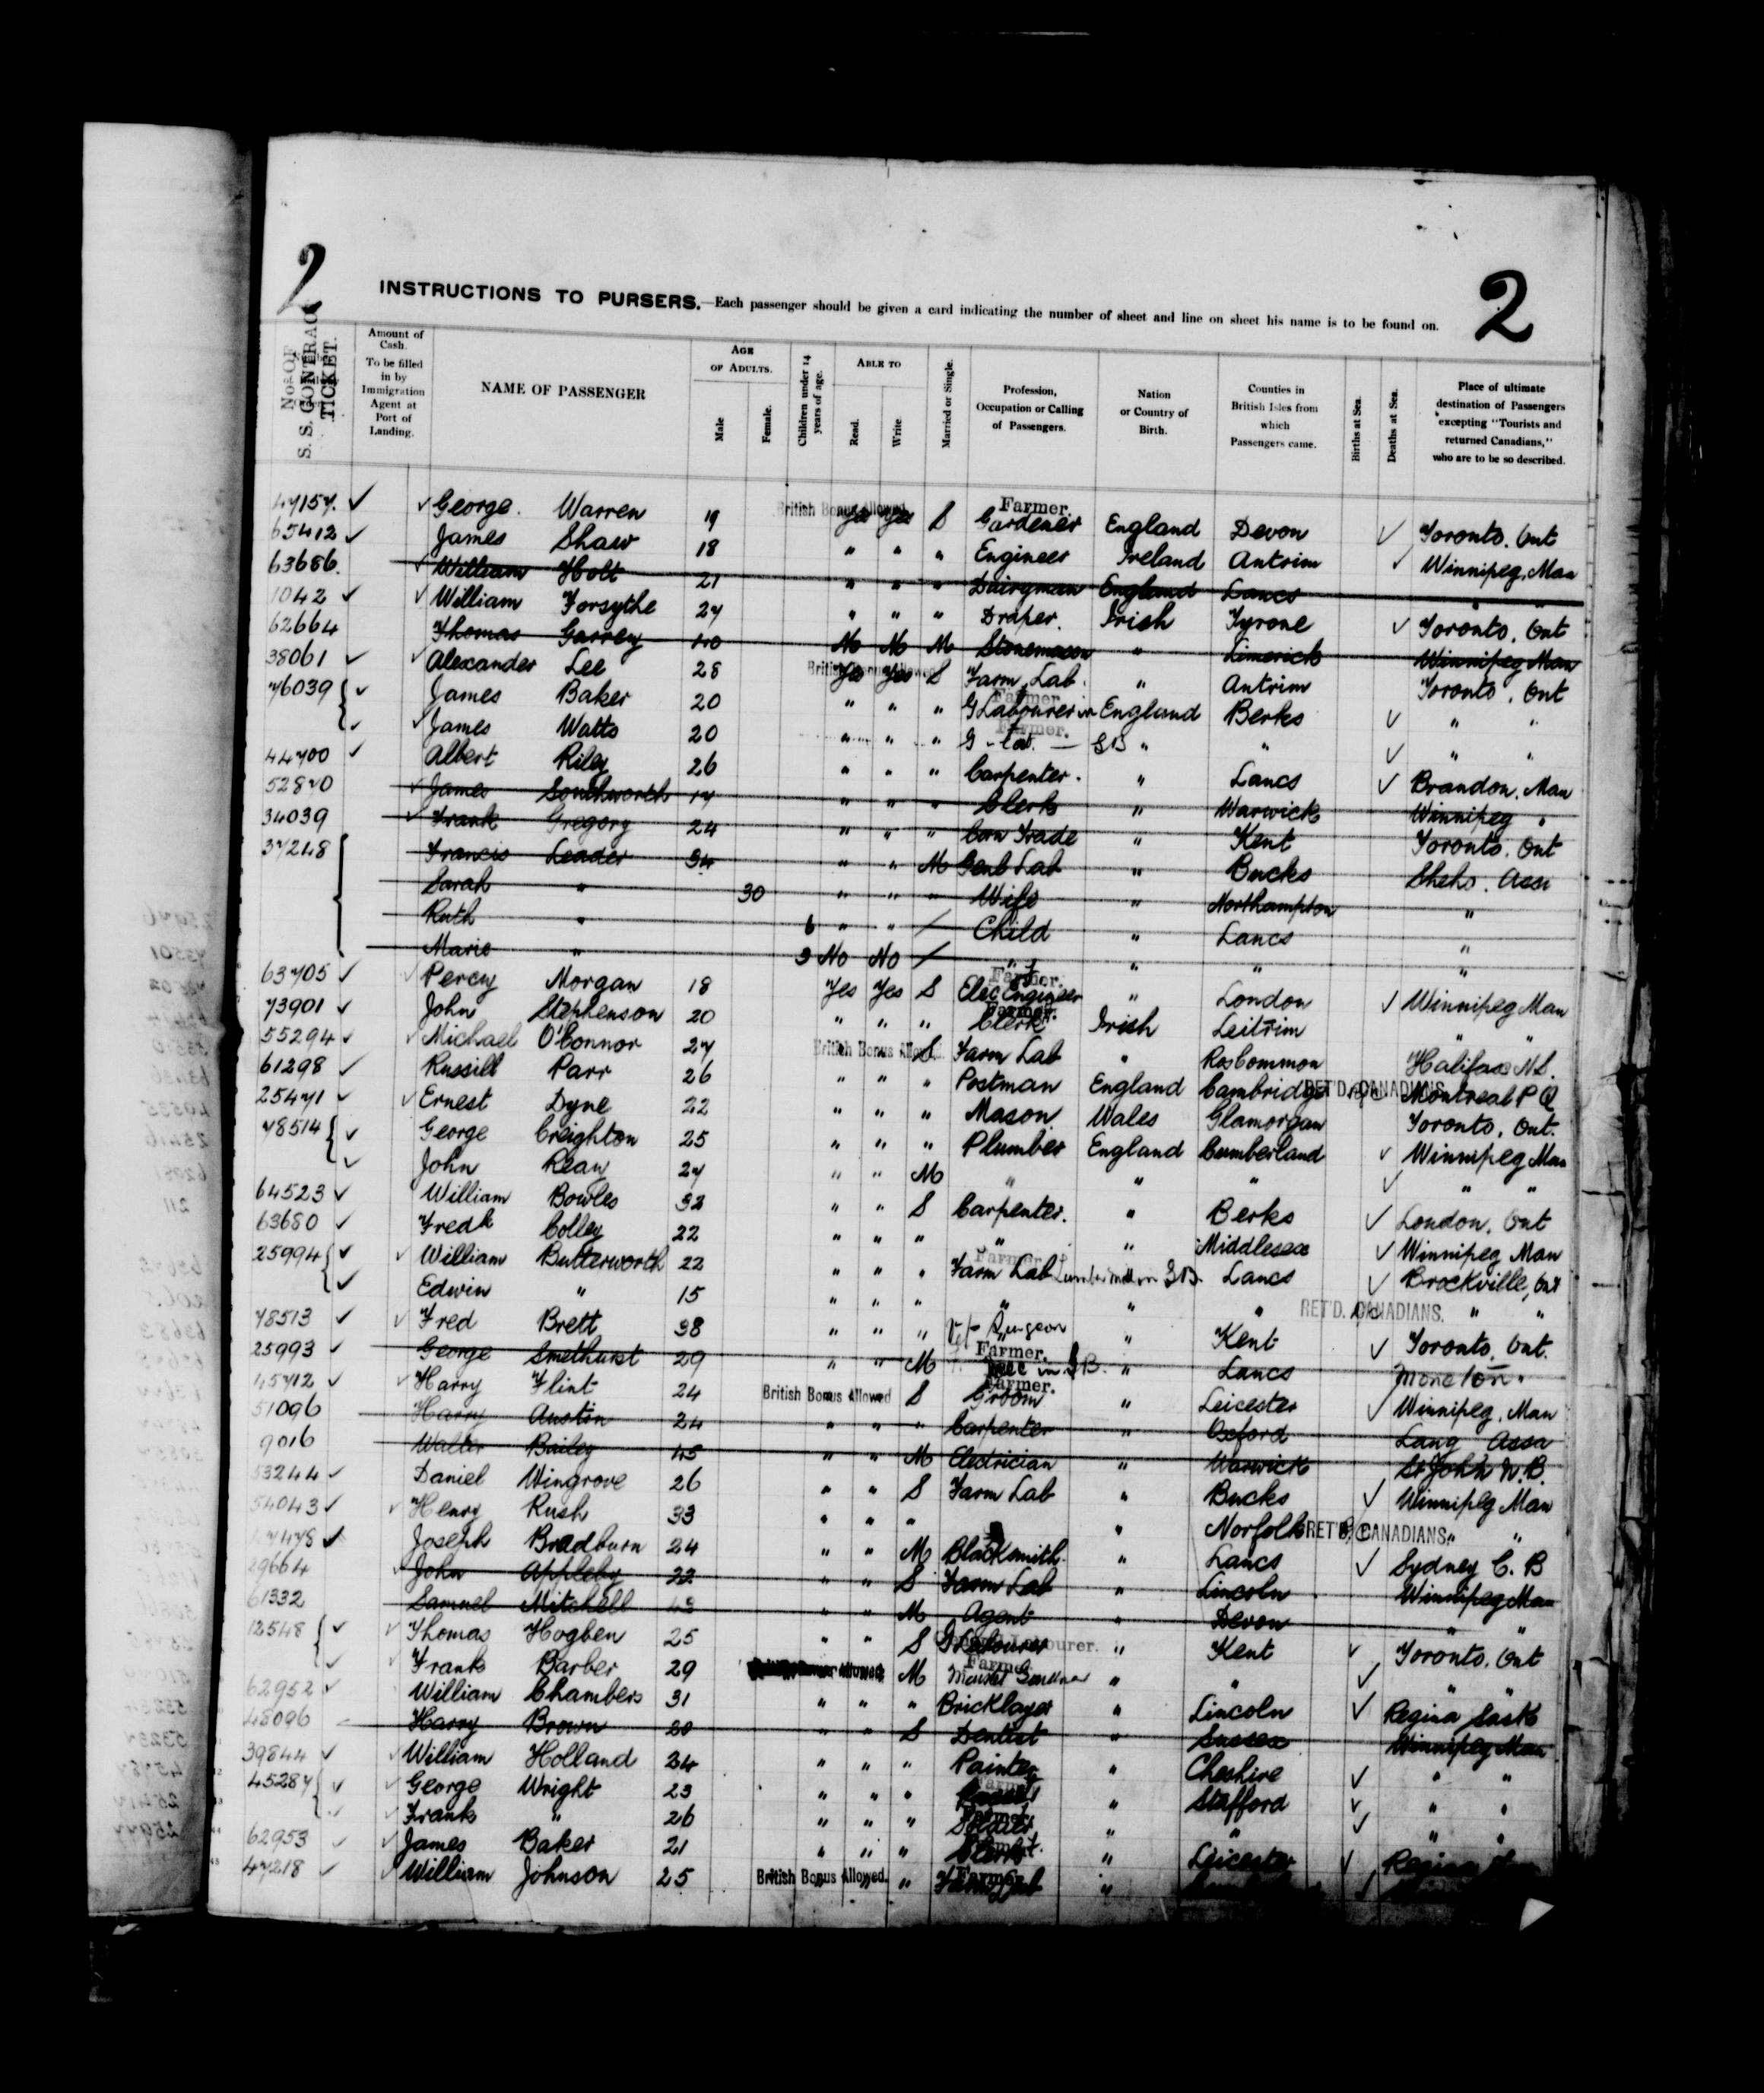 2
2
INSTRUCTIONS TO PURSERS.—Each passenger should be given a card indicating the number of sheet and line on sheet his name is to be found on.
No. OF S. S. CONTRACT TICKET.
Amount of Cash. To be filled in by Immigration Agent at Port of Landing.
NAME OF PASSENGER
AGE OF ADULTS. Male Female.
Children under 14 years of age.
ABLE TO Read. Write.
Married or Single.
Profession, Occupation or Calling of Passengers.
Nation or Country of Birth.
Counties in British Isles from which Passengers came.
Births at Sea.
Deaths at Sea.
Place of ultimate destination of Passengers excepting "Tourists and returned Canadians," who are to be so described.
47157. ✓ ✓ George. Warren 19 British Bonus Allowed Yes Yes S Farmer. Gardener England Devon ✓ Toronto. Ont
65412 ✓ James Shaw 18 " " " Engineer Ireland Antrim ✓ Winnipeg, Man
63686. ✓ William Holt 21 " " " Dairyman England Lancs " "
1042 ✓ ✓ William Forsythe 27 " " " Draper. Irish Tyrone ✓ Toronto. Ont
62664 Thomas 40 No No M Stonemason " Limerick Winnipeg Man
38061 ✓ ✓ Alexander Lee 28 British Bonus Allowed Yes Yes S Farm Lab. " Antrim Toronto, Ont
76039 { ✓ James Baker 20 " " " Farmer. G Labourer in England Berks ✓ " "
✓ ✓ James Watts 20 " " " Farmer. G - Lab. — GB " " ✓ " "
44700 ✓ Albert Riley 26 " " " Carpenter. " Lancs ✓ Brandon. Man
52870 ✓ James Southworth 17 " " " Clerk " Warwick Winnipeg "
34039 ✓ Frank Gregory 24 " " " Corn Trade " Kent Toronto. Ont
37248 { Francis Leader 34 " " M Genl Lab " Bucks Sheho. Assi
Sarah " 30 " " " Wife " Northampton "
Ruth " 6 " " / Child " Lancs "
Marie " 3 No No / " " " "
63705 ✓ ✓ Percy Morgan 18 Yes Yes S Farmer. Elec Engineer " London ✓ Winnipeg Man
73901 ✓ John Stephenson 20 " " " Farmer. Clerk Irish Leitrim " "
55294 ✓ ✓ Michael O'Connor 27 British Bonus Allowed S Farm Lab " RosCommon Halifax N.S.
61298 ✓ Russill Parr 26 " " " Postman England Cambridge RET'D. CANADIANS. Montreal P Q
25471 ✓ ✓ Ernest Dyne 22 " " " Mason Wales Glamorgan Toronto, Ont.
78514 { ✓ George Creighton 25 " " " Plumber England Cumberland ✓ Winnipeg Man
✓ John Rean 27 " " M " " " ✓ " "
64523 ✓ William Bowles 32 " " S Carpenter. " Berks ✓ London. Ont
63680 ✓ Fredk Colley 22 " " " " " Middlesex ✓ Winnipeg Man
25994 { ✓ ✓ William Butterworth 22 " " " Farmer Farm Lab GB. Lancs ✓ Brockville, Ont
✓ Edwin " 15 " " " " " " RET'D. CANADIANS. " "
78513 ✓ ✓ Fred Brett 38 " " " Vet Surgeon " Kent ✓ Toronto, Ont.
25993 ✓ George Smethurst 29 " " M Farmer. in GB. " Lancs Moncton.
45712 ✓ ✓ Harry Flint 24 British Bonus Allowed S Farmer. Groom " Leicester ✓ Winnipeg, Man
51096 Harry Austin 24 " " " Carpenter " Oxford Lang Assa
9016 Walter Bailey 45 " " M Electrician " Warwick St John N.B.
53244 ✓ Daniel Wingrove 26 " " S Farm Lab " Bucks ✓ Winnipeg Man
54043 ✓ ✓ Henry Rush 33 " " " " Norfolk RET'D. CANADIANS. " "
✓ Joseph Bradburn 24 " " M Blacksmith. " Lancs ✓ Sydney C. B
29664 ✓ John Appleby 22 " " S Farm Lab " Lincoln Winnipeg Man
61332 Samuel Mitchell 43 " " M Agent " Devon " "
12548 { ✓ ✓ Thomas Hogben 25 " " S G Labourer Labourer. " Kent ✓ Toronto, Ont
✓ ✓ Frank Barber 29 M Farmer. Market Gardener " " ✓ " "
62952 ✓ William Chambers 31 " " " Bricklayer " Lincoln ✓ Regina Sask
48096 Harry Brown 20 " " S Dentist " Sussex Winnipeg Man
39844 ✓ ✓ William Holland 34 " " " Painter " Cheshire ✓ " "
45287 { ✓ ✓ George Wright 23 " " " Farmer " Stafford ✓ " "
✓ ✓ Frank " 26 " " " Farmer. Soldier " " ✓ " "
62953 ✓ ✓ James Baker 21 " " " Clerk " Leicester ✓ Regina
47218 ✓ ✓ William Johnson 25 British Bonus Allowed. " " " Farmer. Farm Lab " ✓